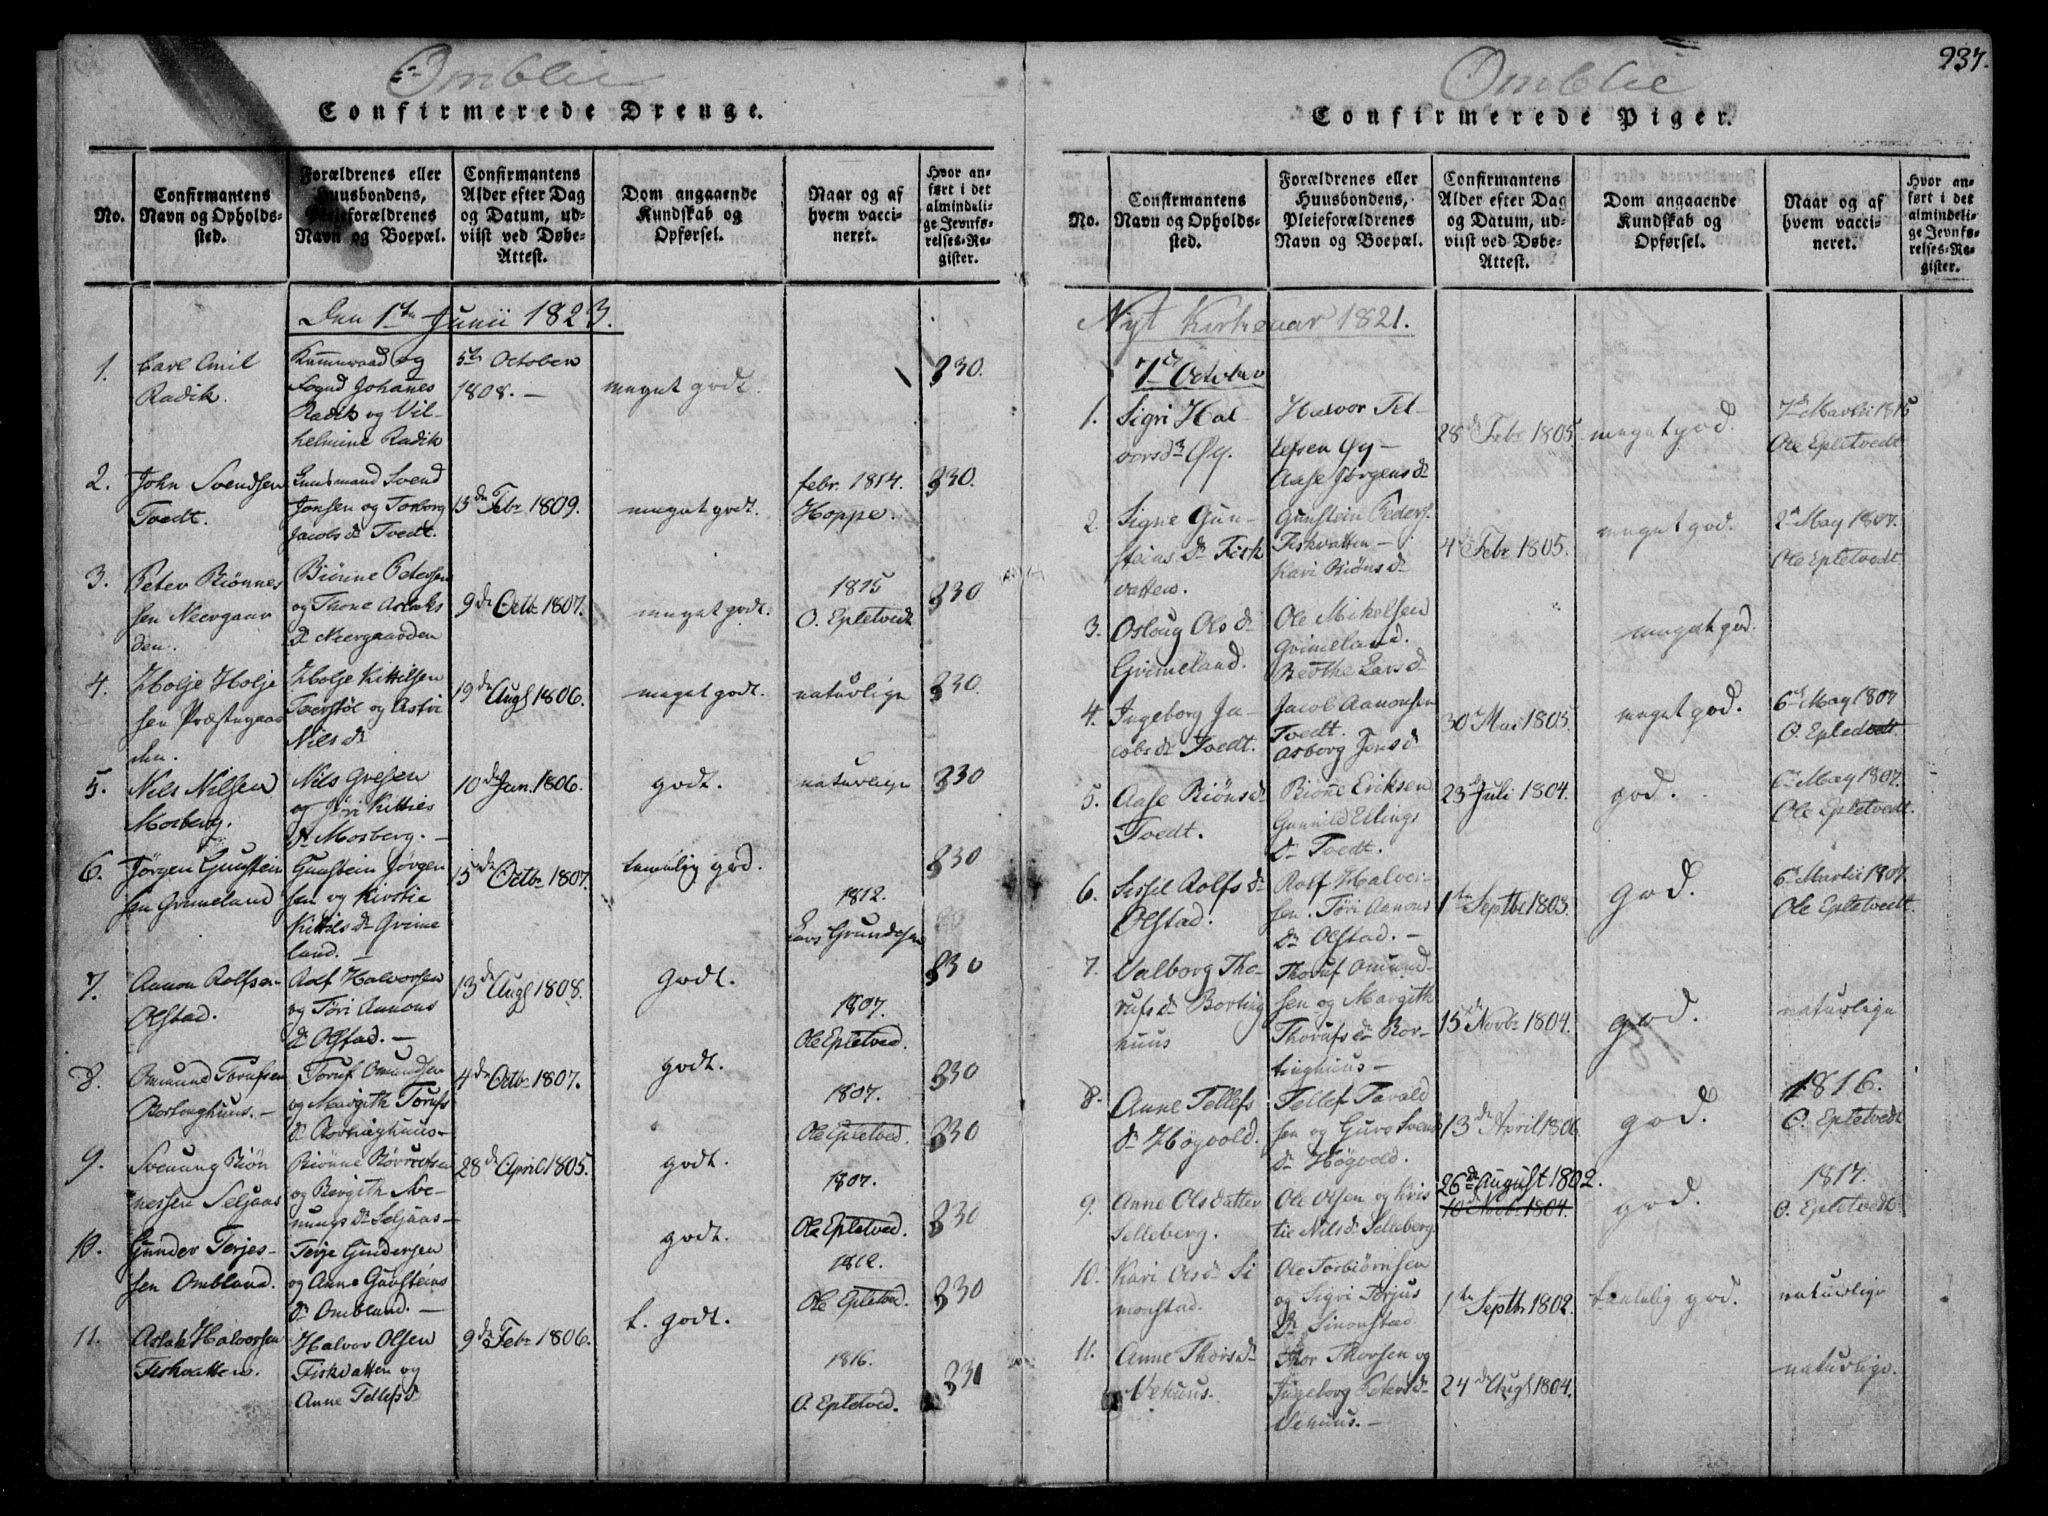 Omblie
Confirmerede Drenge.
No.
Confirmantens
Navn og Opholds-
sted.
Forældrenes eller
Huusbondens,
Pleieforældrenes
Navn og Boepæl.
Confirmantens
Alder efter Dag
og Datum, ud-
viist ved Døbe-
Attest.
Dom angaaende
Kundskab og
Opførsel.
Naar og af
hvem vacci-
neret.
Hvor an-
ført i det
almindeli-
ge Jevnfø-
relses-Re-
gister.
Den 1te Junii 1823.
1.
Carl Emil
Radik.
og
Sogned Johanes
Radik og Vil-
helmine Radik
5te October
1808. —
meget godt.
330.
2.
John Svendsen
Tvedt.
Lensmand Svend
Jonsen og Torborg
Jacobs dr Tvedt.
13de Febr 1809.
meget godt.
febr. 1814.
Hoppe.
330.
3.
Peter Biønnes
sen Neergaar
den.
Biønne Petersen
og Thone Aslaks
dr Neergaarden
9de Octbr 1807.
meget godt.
1815
O. Epletvedt
330
4.
Holje Holje
sen Præstegaar
den.
Holje Kittilsen
Tverstøl og Astri
Nils dr
19de Augs 1806.
meget godt.
naturlige
330
5.
Nils Nilsen
Mosberg.
Nils Grefsen
og Jøri Kittils
dr Mosberg. —
10de Jun. 1806.
godt.
naturlige
330
6.
Jørgen Gunstein
sen Grimeland
Gunstein Jørgen
sen og Kirstie
Kittils dr Grime
land. —
15de Octbr 1807.
temmelig god.
1812.
Lars Grundesen
330
7.
Aanon Rolfsen
Olstad.
Rolf Halvorsen
og Tøri Aanons
dr Olstad. —
13de Augs 1808.
godt.
1807.
Ole Epletved.
330
8.
Omund Torufsen
Bortinghuus. —
Toruf Omundsen
og Margith Torufs
dr Bortinghuus —
4de Octbr 1807.
godt.
1807.
Ole Epletved.
330
9.
Svenung Biøn
nessen Seljaas
Biønne
og Bergith Sve-
nungs dr Seljaas —
28de April 1805.
godt.
1807.
Ole Epletved.
330
10.
Gunder Terjes-
sen Ombland.
Terje Gundersen
og Anne Gunsteins
dr Ombland. —
godt.
1812.
Ole Epletved.
330
11.
Aslak Halvorsen
Fiskvatten.
Halvor Olsen
Fiskvatten og
Anne Tellefs dr
9de Febr 1806.
t. godt.
1816.
O. Epletved.
330
331
937.
Omblie
Confirmerede Piger.
No.
Confirmantens
Navn og Opholds-
sted.
Forældrenes eller
Huusbondens,
Pleieforældrenes
Navn og Boepæl.
Confirmantens
Alder efter Dag
og Datum, ud-
viist ved Døbe-
Attest.
Dom angaaende
Kundskab og
Opførsel.
Naar og af
hvem vacci-
neret.
Hvor an-
ført i det
almindeli-
ge Jevnfø-
relses-Re-
gister.
Nyt Kirkeaar 1821.
7de October
1.
Sigri Hal
vors dr Øy.
Halvor Tel-
lefsen Øy —
Aase Jørgens dr
28de Febr 1805.
meget god.
7de Martii 1815
Ole Epletvedt
2.
Signe Gun-
steins dr Fisk
vatten.
Gunstein Peders.
Fiskvatten —
Kari Biøns dr
4de Febr 1805.
meget god.
2de May 1807.
Ole Epletvedt
3.
Oslaug Ols dr
Grimeland.
Ole Mikelsen
Grimeland.
Berthe Lars dr
meget god.
4.
Ingeborg Ja-
cobs dr Tvedt.
Jacob Aanonsen
Tvedt.
Asborg Jons dr
30de Mai 1805.
meget god.
6de May 1807
O. Epledvedt
5.
Aase Biøns dr
Tvedt.
Biønne Eriksen
Gunnild Ellings
dr Tvedt.
23de Juli 1804.
god.
6te May 1807.
Ole Epletvedt
6.
Sissel Rolfs dr
Olstad.
Rolf Halvor-
sen. Tøri Aanons
dr Olstad. —
1te Septbr 1803.
god.
6te Martii 1807.
Ole Epletvedt.
7.
Valborg Tho-
rufs dr Borting
huus
Thoruf Omund-
sen og Margith
Thorufs dr Bor-
tinghuus —
15de Novbr 1804.
god.
naturlige
8.
Anne Tellefs
dr Høgvold.
Tellef Tarald
sen og Guro Svens
dr Høgvold.
13de April 1806
god.
1816.
O. Epletvedt
9.
Anne Olsdatter
Selleberg.
Ole Olsen og Kris
tie Nils dr Selleberg.
26de August 1802.
10 Novb 1804.
god.
1817.
O. Epletvedt
10.
Kari Ols dr Si
monstad.
Ole Torbiørnsen
og Sigri Terjus
dr Simonstad
1te Septbr 1802.
temelig god.
naturlige
11.
Anne Thors dr
Vehuus.
Thor Thorsen og
Ingeborg Peters dr
Vehuus. —
24de Augs 1804.
naturlige.